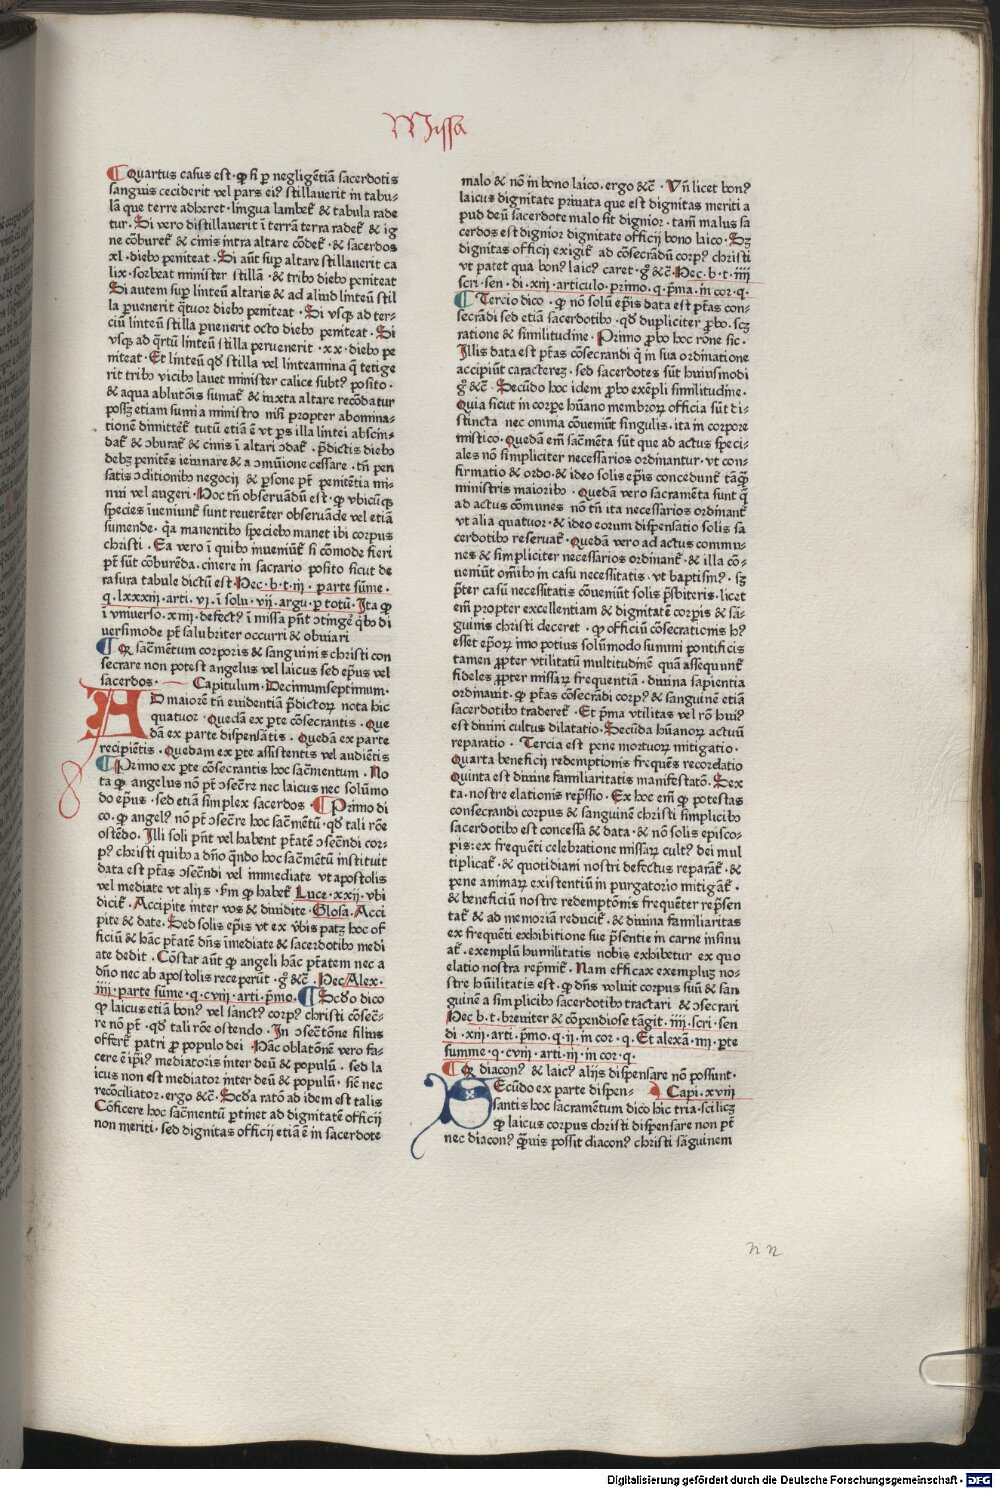 Missa
Quartus casus est· ꝙ si ꝑ negligẽtiã sacerdotis
sanguis ceciderit vel pars eiꝰ stillauerit in tabu-
lã que terre adheret· lingua lambet᷑ & tabula rade
tur· Si vero distillauerit ĩ terrã terra radet᷑ & ig
ne cõburet᷑ & cinis intra altare cõdet᷑· & sacerdos
xl· diebꝰ peniteat· Si aũt suꝑ altare stillauerit ca
lix· sorbeat minister stillã· & tribꝰ diebꝰ peniteat
Si autem suꝑ linteũ altaris & ad aliud linteũ stil
la ꝑuenerit q̃tuor diebꝰ peniteat· Si vsqꝫ ad ter-
ciũ linteũ stilla ꝑuenerit octo diebꝰ peniteat· Si
vsqꝫ ad q̃rtũ linteũ stilla peruenerit· xx· diebꝰ pe
niteat· Et linteũ qd̃ stilla vel linteamina q̃ tetige
rit tribꝰ vicibꝰ lauet minister calice subtꝰ posito·
& aqua ablutõis sumat᷑ & iuxta altare recõdatur
possꝫ etiam sumi a ministro nisi propter abomina-
tionẽ dimittet᷑ tutũ etiã ẽ vt ꝑs illa lintei abscin-
dat᷑ & ɔburat᷑ & cinis ĩ altari ɔdat᷑· p̃dictis diebꝰ
debꝫ penitẽs ieiunare & a ɔmuïone cessare· tñ pen
satis ɔditionibꝰ negocij & ꝑsone pt̃ penitẽtia mi-
nui vel augeri· Hoc tñ obseruãdũ est· ꝙ vbicũqꝫ
species ĩueniunt᷑ sunt reuerẽter obseruãde vel etiã
sumende· q̃a manentibꝰ speciebꝰ manet ibi corpus
christi· Ea vero ĩ quibꝰ inueniũt᷑ si cõmode fieri
pt̃ sũt cõburẽda· cinere in sacrario posito sicut de
rasura tabule dictũ est· Hec· b· t· iij· parte sũme·
q· lxxxiij· arti· vi· ĩ solu· vij· argu· ꝑ totũ· Ita ꝙ
ĩ vniuerso· xiiij· defectꝰ ĩ missa pñt ɔtingẽ q̃bꝰ di
uersimode pt̃ salubriter occurri & obuiari
Qꝙ sac̃mẽtum corporis & sanguinis christi con
secrare non potest angelus vel laicus sed ep̃us vel
sacerdos· Capitulum· Decimumseptimum·
AD maiorẽ tñ euidentiã p̃dictoꝝ nota hic
quatuor· Quedã ex ꝑte cõsecrantis· Que
dã ex parte dispensãtis· Quedã ex parte
recipiẽtis· Quedam ex ꝑte assistentis vel audiẽtis
Primo ex ꝑte cõsecrantis hoc sac̃mentum· No
ta ꝙ angelus nõ pt̃ ɔsec̃re nec laicus nec solũmo
do ep̃us· sed etiã simplex sacerdos· Primo di
co· ꝙ angelꝰ nõ pt̃ ɔsec̃re hoc sac̃mẽtũ· qd̃ tali rõe
ostẽdo· Illi soli pñt vel habent pt̃atẽ ɔsec̃ndi cor-
pꝰ christi quibꝰ a dño qñdo hoc sac̃mẽtũ instituit
data est pt̃as ɔsec̃ndi vel immediate vt apostolis
vel mediate vt alijs· s̃m ꝙ habet᷑ Luce· xxij· vbi
dicit᷑· Accipite inter vos & diuidite· Glosa· Acci
pite & date· Sed solis ep̃is vt ex v̾bis patꝫ hoc of
ficiũ & hãc pt̃atẽ dñs ĩmediate & sacerdotibꝰ medi
ate dedit· Cõstat aũt ꝙ angeli hãc pt̃atem nec a
dño nec ab apostolis receperũt· g̊ &c̃· Hec Alex·
iiij· parte sũme· q· cvij· arti· p̃mo· Scd̃o dico
ꝙ laicus etiã bonꝰ vel sanctꝰ corpꝰ christi cõsec̃-
re nõ pt̃· qd̃ tali rõe ostendo· In ɔsec̃tõne filius
offert᷑ patri ꝓ populo dei· Hãc oblatõnẽ vero fa-
cere ẽ ip̃iꝰ mediatoris inter deũ & populũ· sed la
icus non est mediator inter deũ & populũ· sic̃ nec
recõciliator· ergo &c̃· Scd̃a ratõ ad idem est talis
Cõficere hoc sac̃mentũ ꝑtinet ad dignitatẽ officij
non meriti· sed dignitas officij etiã ẽ in sacerdote
malo & nõ in bono laico· ergo &c̃· Vñ licet bonꝰ
laicus dignitate priuata que est dignitas meriti a
pud deũ sacerdote malo sit dignior· tam̃ malus sa
cerdos est dignior dignitate officij bono laico· Sꝫ
dignitas officij exigit᷑ ad cõsecrãdũ corpꝰ christi
vt patet qua bonꝰ laicꝰ caret· g̊ &c̃· Hec· b· t· iiij
scri· sen· di· xiij· articulo· primo· q· p̃ma· in cor· q·
Tercio dico· ꝙ nõ solũ ep̃is data est pt̃as con-
secrãdi sed etiã sacerdotibꝰ· qd̃ dupliciter ꝓbo· scꝫ
ratione & similitudine· Primo ꝓbo hoc rõne sic·
Illis data est pt̃as cõsecrandi q̃ in sua ordinatione
accipiũt caracterez· sed sacerdotes sũt huiusmodi
g̊ &c̃· Secũdo hoc idem ꝓbo exẽpli similitudine·
Quia sicut in corꝑe hũano membroꝝ officia sũt di-
stincta nec omnia cõueniũt singulis· ita in corpore
mistico· Quedã em̃ sac̃mẽta sũt que ad actus speci-
ales nõ simpliciter necessarios ordinantur· vt con-
firmatio & ordo· & ideo solis ep̃is concedunt᷑ tãq̃
ministris maioribꝰ· Quedã vero sacramẽta sunt q̃
ad actus cõmunes nõ tñ ita necessarios ordinant᷑
vt alia quatuor· & ideo eorum dispensatio solis sa
cerdotibꝰ reseruat᷑· Quedã vero ad actus commu-
nes & simpliciter necessarios ordinant᷑· & illa cõ-
ueniũt om̃ibꝰ in casu necessitatis· vt baptismꝰ· sꝫ
p̃ter casũ necessitatis cõueniũt solis p̃sbiteris· licet
em̃ propter excellentiam & dignitatẽ corꝑis & sã-
guinis christi deceret· ꝙ officiũ cõsecrationis hꝰ
esset ep̃oꝝ imo potius solũmodo summi pontificis
tamen ꝓpter vtilitatũ multitudinẽ quã assequunt᷑
fideles ꝓpter missaꝝ frequentiã· diuina sapientia
ordinauit· ꝙ pt̃as cõsecrãdi corpꝰ & sanguinẽ etiã
sacerdotibꝰ traderet᷑· Et p̃ma vtilitas vel rõ huiꝰ
est diuini cultus dilatatio· Secũda hũanoꝝ actuũ
reparatio· Tercia est pene mortuoꝝ mitigatio·
Quarta beneficij redemptionis frequẽs recordatio
Quinta est diuine familiaritatis manifestatõ· Sex
ta· nostre elationis rep̃ssio· Ex hoc em̃ ꝙ potestas
consecrandi corpus & sanguinẽ christi simplicibꝰ
sacerdotibꝰ est concessa & data· & nõ solis episco-
pis: ex frequẽti celebratione missaꝝ cultꝰ dei mul
tiplicat᷑· & quotidiani nostri defectus reparãt᷑· &
pene animaꝝ existentiũ in purgatorio mitigãt᷑·
& beneficiũ nostre redemptõnis frequẽter rep̃sen
tat᷑ & ad memoriã reducit᷑· & diuina familiaritas
ex frequẽti exhibitione sue p̃sentie in carne insinu
at᷑· exemplũ humilitatis nobis exhibetur ex quo
elatio nostra rep̃mit᷑· Nam efficax exempluꝫ no-
stre hũilitatis est· ꝙ dñs voluit corpus suũ & san
guinẽ a simplicibꝰ sacerdotibꝰ tractari & ɔsecrari
Hec b· t· breuiter & cõpendiose tãgit· iiij· scri· sen
di· xiij· arti· p̃mo· q· ij· in cor· q· Et alexã· iiij· ꝑte
summe· q· cvij· arti· ij· in cor· q·
Qꝙ diaconꝰ & laicꝰ alijs dispensare nõ possunt·
SEcũdo ex parte dispen- Capi· xviij
santis hoc sacramẽtum dico hic tria· scilicꝫ
ꝙ laicus corpus christi dispensare non pt̃
nec diaconꝰ q̃uis possit diaconꝰ christi sãguinem
n n
Digitalisierung gefördert durch die Deutsche Forschungsgemeinschaft - DFG